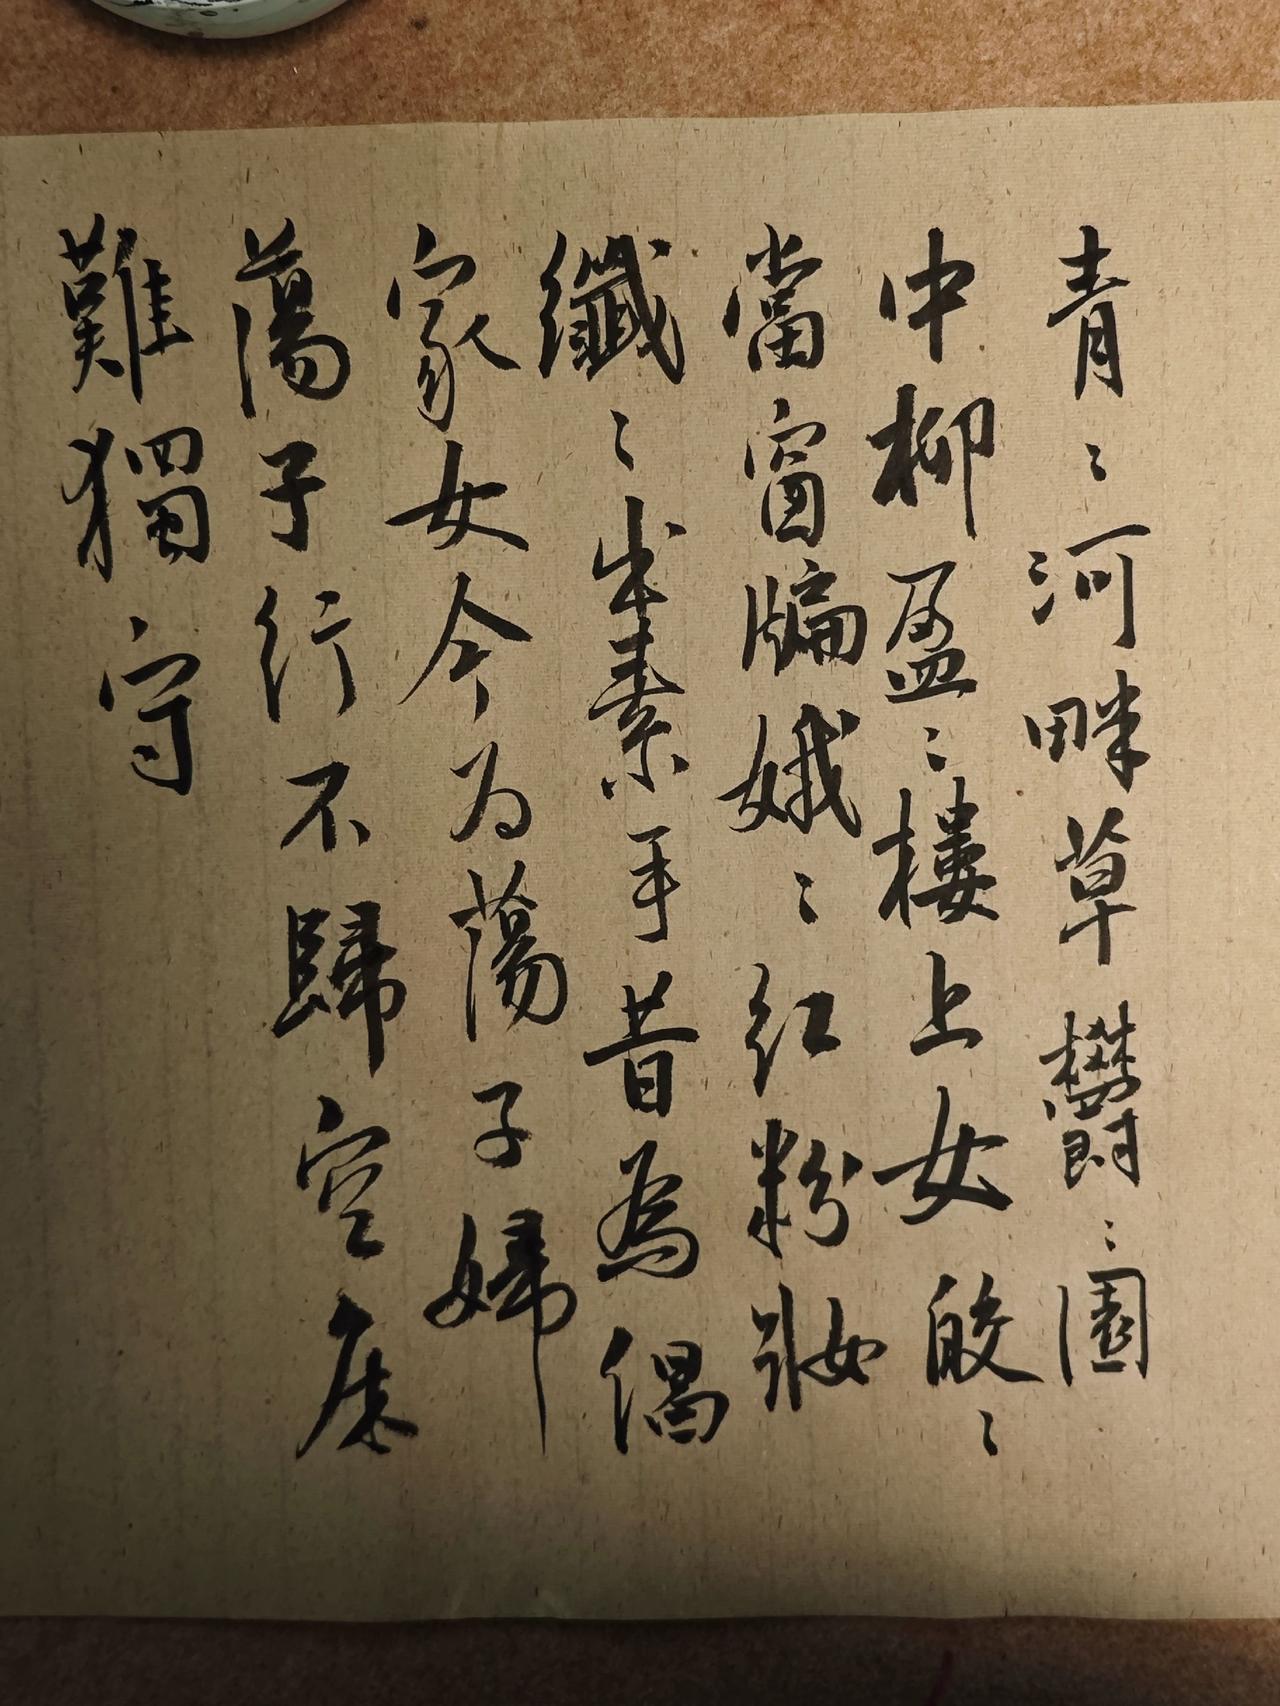 青〻河畔草欝〻園
中柳盈〻樓上女皎〻
當窗牖娥〻紅粉妝
纖〻出素手昔為倡
家女今为蕩子婦
蕩子行不歸空床
難獨守